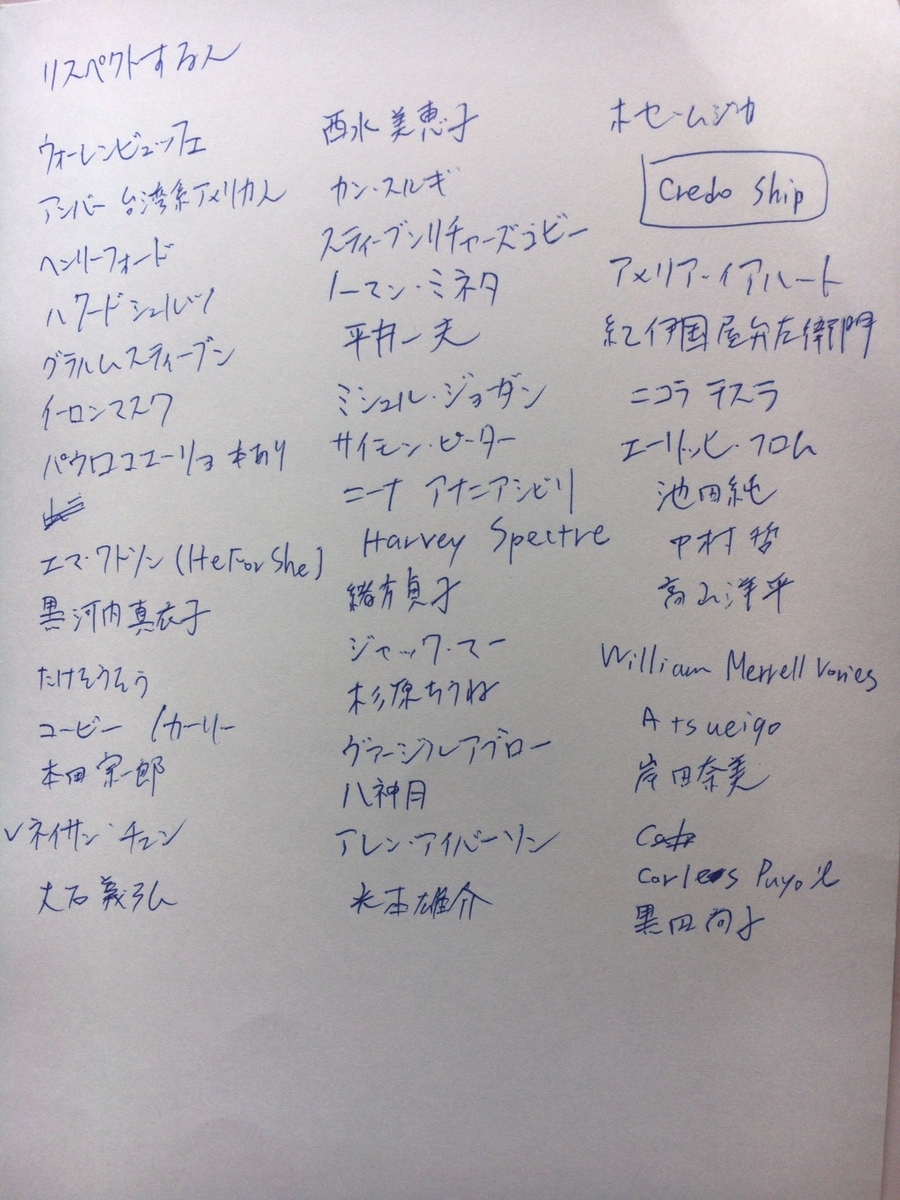 リスペクトする人
ウォーレンビュッフェ
アンバー 台湾系アメリカ人
ヘンリーフォード
ハワードシュルツ
グラハムスティーブン
イーロンマスク
パウロコエーリョ 本あり
エマ・ワトソン (HeForShe)
黒河内真衣子
たけそうそう
コービー /カーリー
本田宗一郎
✓ネイサン・チェン
大石義弘
西水美恵子
カン・スルギ
スティーブンリチャーズコビー
ノーマン・ミネタ
平井一夫
ミシェル・ジョダン
サイモン・ピーター
ニーナ アナニアシビリ
Harvey Spectre
緒方貞子
ジャック・マー
杉原ちうね
ヴァージルアブロー
八神月
アレン・アイバーソン
米本雄介
ホセ・ムジカ
Credo Ship
アメリア・イアハート
紀伊国屋分左衛門
ニコラ テスラ
エーリッヒ・フロム
池田純
中村哲
高山洋平
William Merrell Vories
Atsueigo
岸田奈美
Corles Puyo'l
黒田尚子